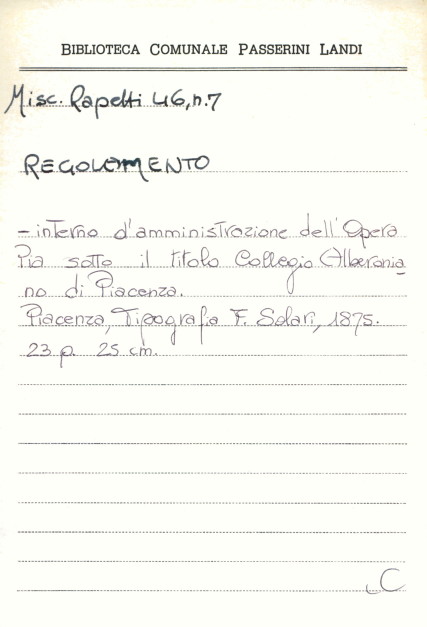 BIBLIOTECA COMUNALE PASSERINI LANDI
Misc. Rapetti 46, n.7
REGOLAMENTO
- interno d'amministrazione dell'Opera
Pia sotto il titolo Collegio Alberonia
no di Piacenza.
Piacenza, Tipografia F. Solari, 1875.
23 p. 25 cm.
C